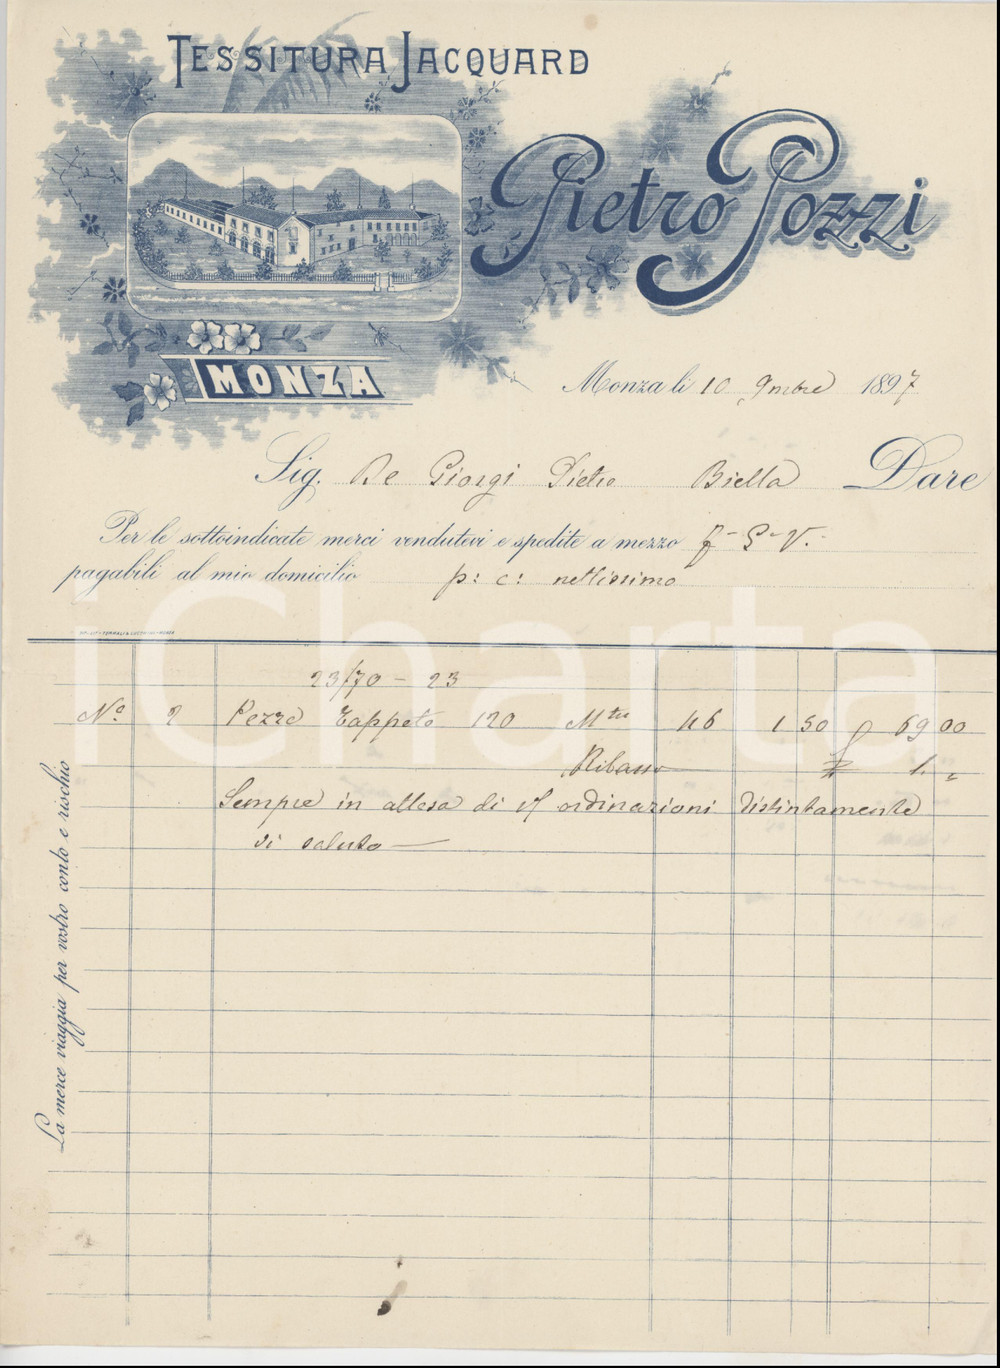 TESSITURA JACQUARD
Pietro Pozzi
MONZA
Monza li 10 9mbre 1897
Sig. De Giorgi Pietro Biella Dare
Per le sottoindicate merci vendutevi e spedite a mezzo f - G - V. -
pagabili al mio domicilio p: c: nettissimo
iCharta
23/70 - 23
No. 2 Pezze Tappeto 120 Mtri 46 1 50 69 00
Ribasso 1. =
Sempre in attesa di Vf ordinazioni distintamente
vi saluto
La merce viaggia per vostro conto e rischio